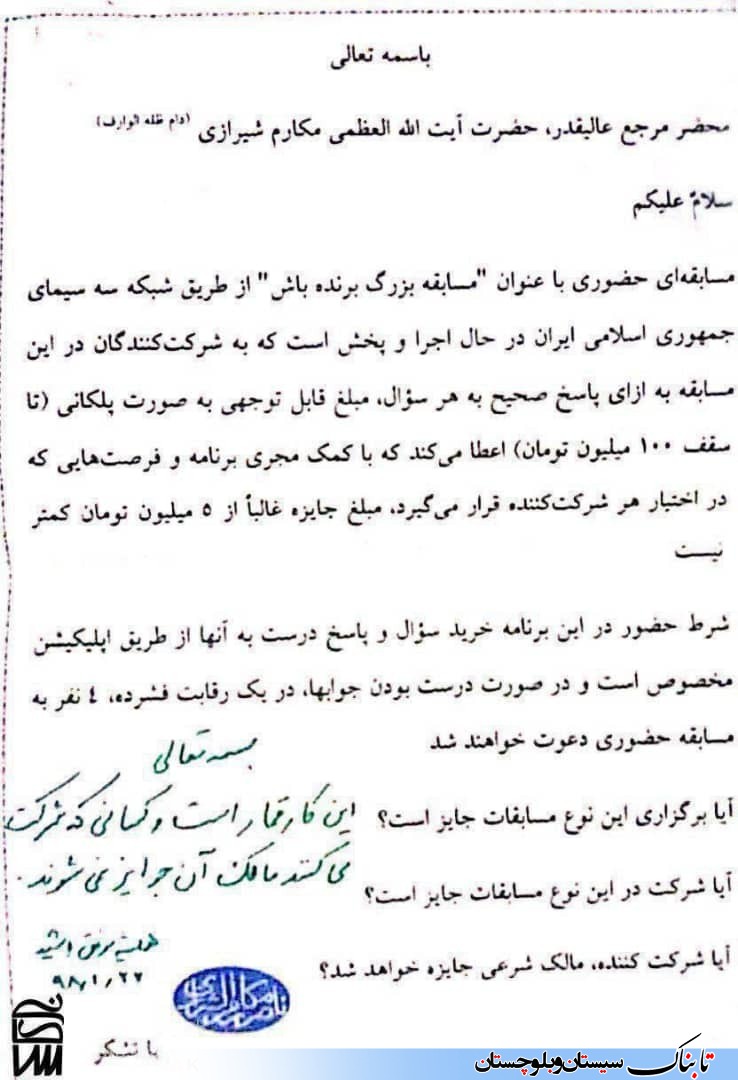 باسمه تعالی
محضر مرجع عالیقدر، حضرت آیت الله العظمی مکارم شیرازی (دام ظله الوارف)
سلامٌ علیکم
مسابقه‌ای حضوری با عنوان "مسابقه بزرگ برنده باش" از طریق شبکه سه سیمای
جمهوری اسلامی ایران در حال اجرا و پخش است که به شرکت‌کنندگان در این
مسابقه به ازای پاسخ صحیح به هر سؤال، مبلغ قابل توجهی به صورت پلکانی (تا
سقف ۱۰۰ میلیون تومان) اعطا می‌کند که با کمک مجری برنامه و فرصت‌هایی که
در اختیار هر شرکت‌کننده قرار می‌گیرد، مبلغ جایزه غالباً از ۵ میلیون تومان کمتر
نیست
شرط حضور در این برنامه خرید سؤال و پاسخ درست به آنها از طریق اپلیکیشن
مخصوص است و در صورت درست بودن جوابها، در یک رقابت فشرده، ٤ نفر به
مسابقه حضوری دعوت خواهند شد
آیا برگزاری این نوع مسابقات جایز است؟
آیا شرکت در این نوع مسابقات جایز است؟
آیا شرکت کننده، مالک شرعی جایزه خواهد شد؟
بسمه تعالی
این کار قمار است و کسانی که شرکت
می کنند مالک آن جوایز نمی شوند.
همیشه موفق باشید
۹۸/۱/۲۷
ناصر مکارم الشیرازی
با تشکر
تابناک سیستان و بلوچستان